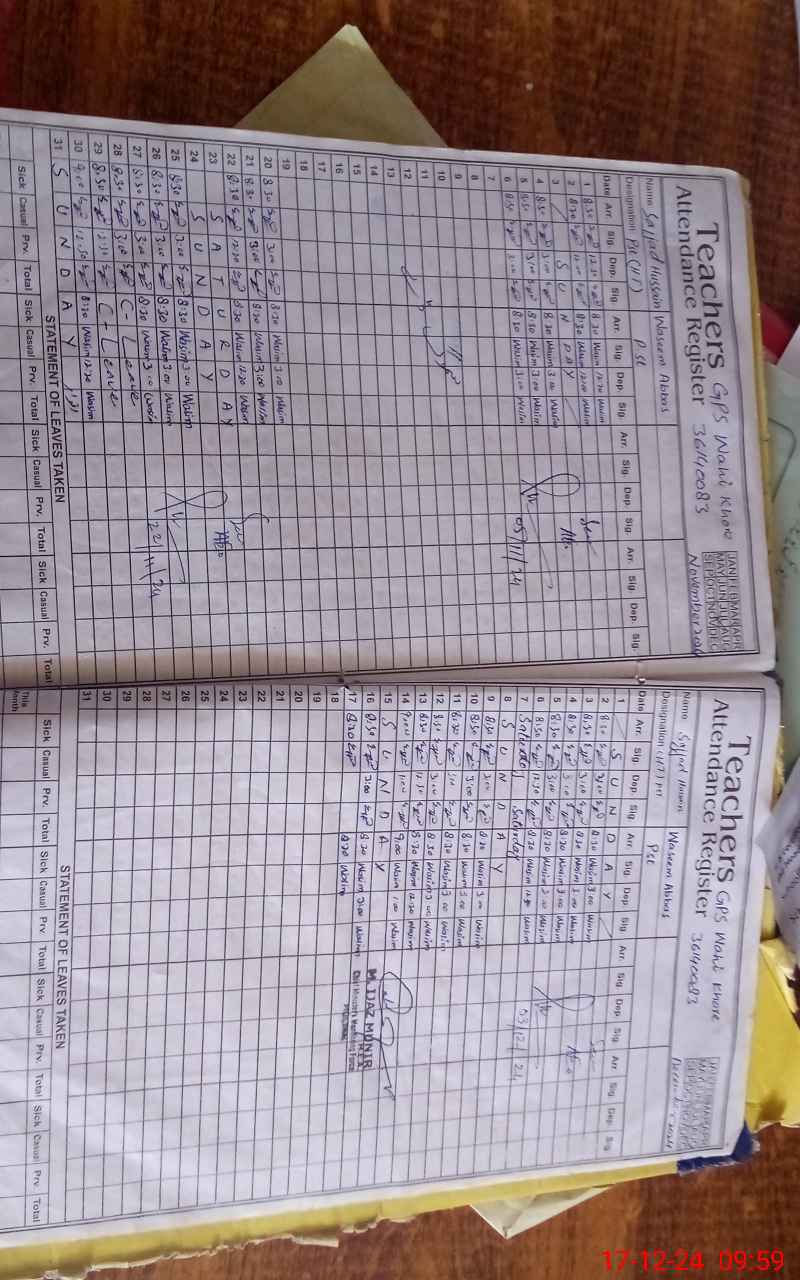 Teachers GPS Wahi Khore
Attendance Register 36140083
JAN FEB MAR APR
MAY JUN JUL AUG
SEP OCT NOV DEC
November 2024
Name Sajjad Hussain Waseem Abbas
Designation: PST
Date Arr. Sig. Dep. Sig. Arr. Sig. Dep. Sig. Arr. Sig. Dep. Sig. Arr. Sig. Dep. Sig.
1 8:30 12:30 8:30 Wasim 12:30 Wasim
2 8:30 12:00 8:30 Wasim 12:00 Wasim
3 S U N DAY
4 8:30 3:00 8:30 Wasim 3:00 Wasim
5 8:30 3:00 8:30 Wasim 3:00 Wasim
6 8:30 3:00 8:30 Wasim 3:00 Wasim
05/11/24
7
8
9
10
11
12
13
14
15
16
17
18
19
20 8:30 3:00 8:30 Wasim 3:00 Wasim
21 8:30 3:00 8:30 Wasim 3:00 Wasim
22 8:30 12:30 8:30 Wasim 12:30 Wasim
23 S A T U R D A Y
24 S U N D A Y
25 8:30 3:00 8:30 Wasim 3:00 Wasim
26 8:30 3:00 8:30 Wasim 3:00 Wasim
27 8:30 3:00 8:30 Wasim 3:00 Wasim
22/11/24
28 8:30 3:00 C- Leave
29 8:30 12:30 C- Leave
30 9:00 12:30 8:30 Wasim 12:30 Wasim
31 S U N D A Y
STATEMENT OF LEAVES TAKEN
Sick Casual Prv. Total Sick Casual Prv. Total Sick Casual Prv. Total Sick Casual Prv. Total
Teachers GPS Wahi Khore
Attendance Register 36140083
JAN FEB MAR APR
MAY JUN JUL AUG
SEP OCT NOV DEC
December 2024
Name Sajjad Hussain Waseem Abbas
Designation (HT) PST PST
Date Arr. Sig. Dep. Sig. Arr. Sig. Dep. Sig. Arr. Sig. Dep. Sig. Arr. Sig. Dep. Sig.
1 S U N D A Y
2 8:30 3:00 8:30 Wasim 3:00 Wasim
3 8:30 3:00 8:30 Wasim 3:00 Wasim
4 8:30 3:00 8:30 Wasim 3:00 Wasim
5 8:30 3:00 8:30 Wasim 3:00 Wasim
6 8:30 12:30 8:30 Wasim 12:30 Wasim
03/12/24
7 Saturday Saturday
8 S U N D A Y
9 8:30 3:00 8:30 Wasim 3:00 Wasim
10 8:30 3:00 8:30 Wasim 3:00 Wasim
11 8:30 8:30 Wasim 3:00 Wasim
12 8:30 3:00 8:30 Wasim 3:00 Wasim
13 8:30 12:30 8:30 Wasim 12:30 Wasim
14 9:00 1:00 9:00 Wasim 1:00 Wasim
15 S U N D A Y
16 8:30 3:00 8:30 Wasim 3:00 Wasim
17 8:30 8:30 Wasim
M. IJAZ MUNIR
Chief Minister's Monitoring Force
18
19
20
21
22
23
24
25
26
27
28
29
30
31
STATEMENT OF LEAVES TAKEN
This Month Sick Casual Prv. Total Sick Casual Prv. Total Sick Casual Prv. Total Sick Casual Prv. Total
17-12-24 09:59